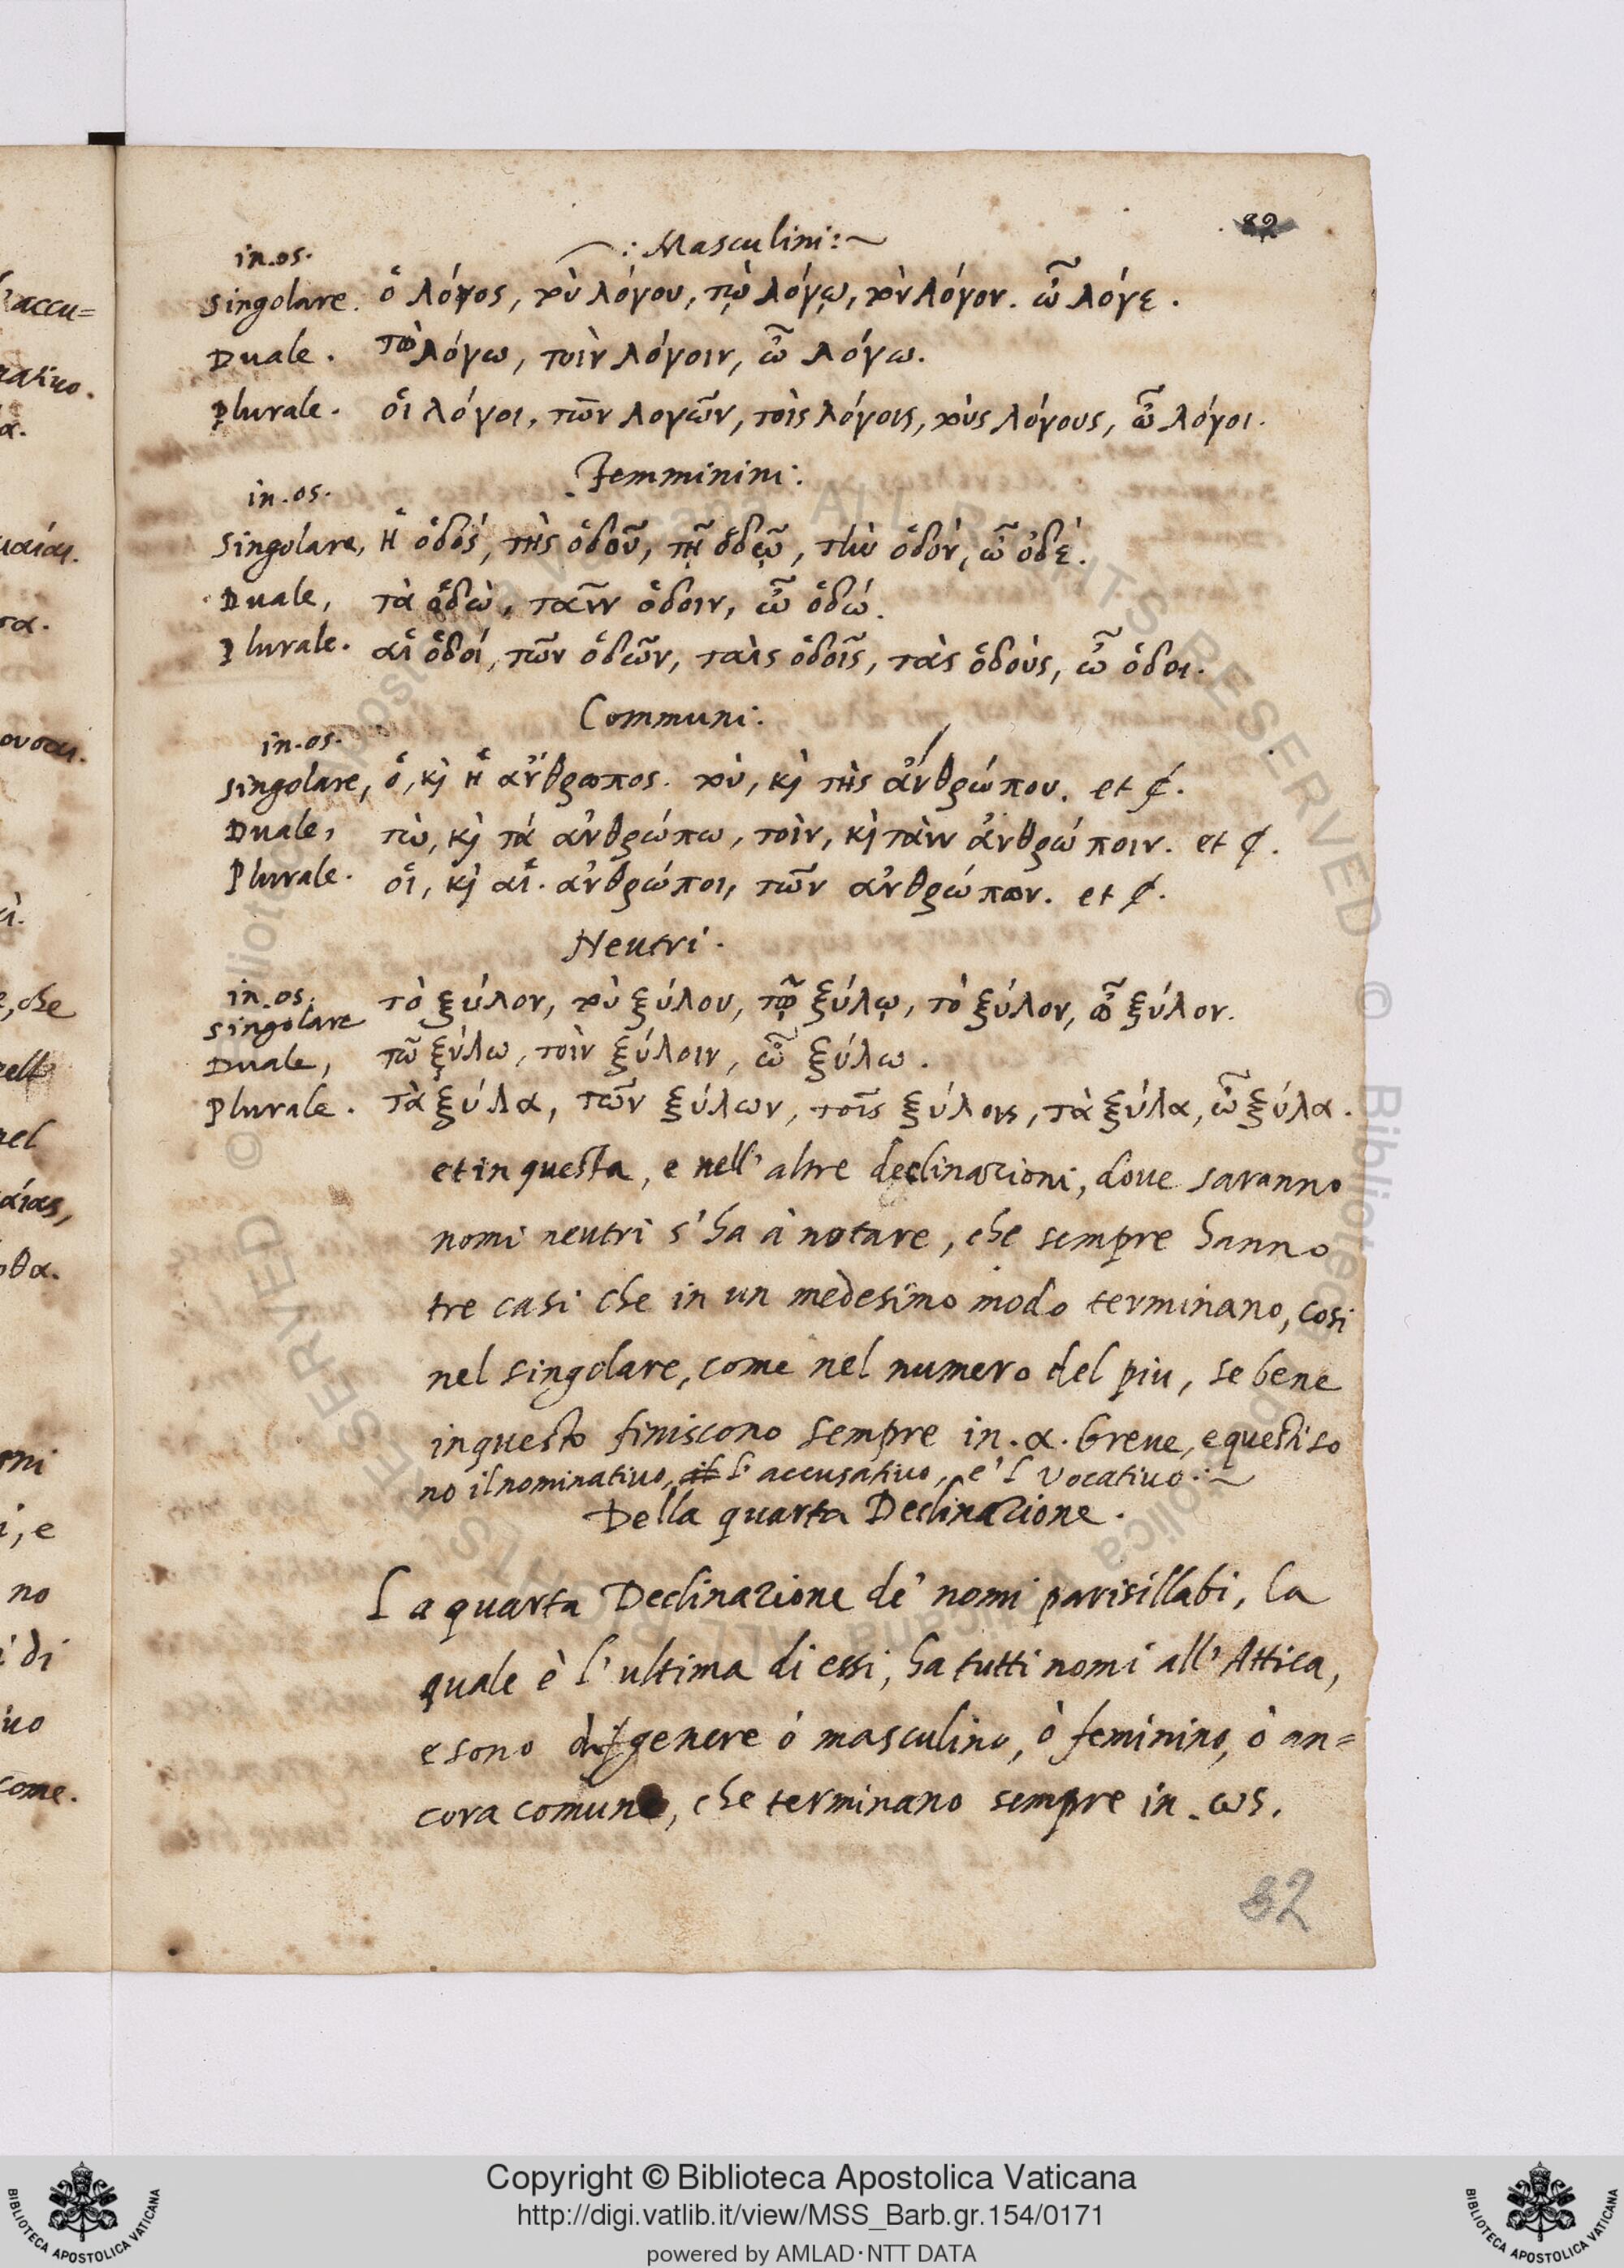 82
:Masculini:~
in.os.
Singolare. ὁ λόγος, τοὺ λόγου, τῲ λόγῳ, τὸν λόγον. ὦ λόγε.
Duale. τὼ λόγω, τοὶν λόγοιν, ὦ λόγω.
Plurale. ὁι λόγοι, τῶν λογῶν, τοὶς λόγοις, τοὺς λόγους, ὦ λόγοι.
Femminini:
in.os.
Singolare, ἡ ὁδός, τὴς ὁδοῦ, τῇ ὁδῷ, τὴν ὁδόν, ὦ ὁδέ.
Duale, τὰ ὁδὼ, ταῖν ὁδοιν, ὦ ὁδώ.
Plurale. αἱ ὁδοί, τῶν ὁδῶν, ταὶς ὁδοῖς, τὰς ὁδούς, ὦ ὁδοι.
Communi:
in.os.
Singolare, ὁ, κὶ ἡ ἄνθρωπος. τοὺ, κὶ τὴς ἀνθρώπου. et ȼ.
Duale, τὼ, κὶ τά ἀνθρώπω, τοὶν, κὶ ταὶν ἀνθρώποιν. et ȼ.
Plurale. ὁι, κὶ αἱ. ἀνθρώποι, τῶν ἀνθρώπων. et ȼ.
Neutri.
in.os. τὸ ξύλον, τοὺ ξύλου, τῷ ξύλῳ, τὸ ξύλον, ὦ ξύλον.
Singolare
Duale, τῶ ξύλω, τοὶν ξύλοιν, ὦ ξύλω.
Plurale. τὰ ξύλα, τῶν ξύλων, τοῖς ξύλοις, τὰ ξύλα, ὦ ξύλα.
et in questa, e nell'altre declinazioni, doue saranno
nomi neutri s'ha à notare, che sempre hanno
tre casi che in un medesimo modo terminano, cosi
nel singolare, come nel numero del piu, se bene
in questo finiscono sempre in .α. breue, e questi so
no il nominatiuo, il l'accusatiuo, e'l Vocatiuo.:~
Della quarta Declinazione.
La quarta Declinazione de' nomi parisillabi, la
quale è l'ultima di essi, ha tutti nomi all'Attica,
e sono di genere ò masculino, ò feminino, ò an=
cora comune, che terminano sempre in .ως.
82
Copyright © Biblioteca Apostolica Vaticana
http://digi.vatlib.it/view/MSS_Barb.gr.154/0171
powered by AMLAD·NTT DATA
BIBLIOTECA APOSTOLICA VATICANA
BIBLIOTECA APOSTOLICA VATICANA